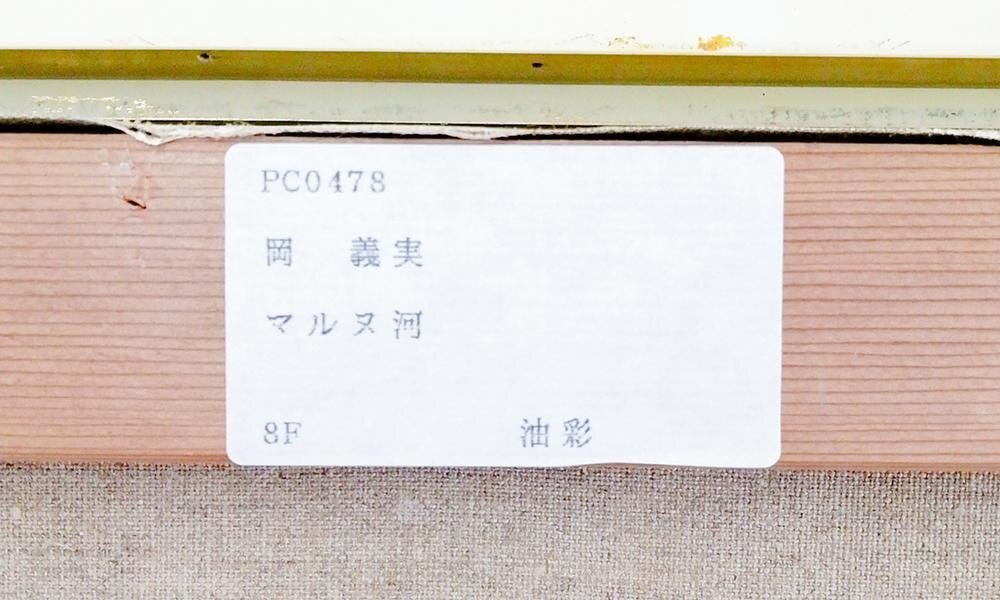 PC0478
岡　義実
マルヌ河
8F　油彩